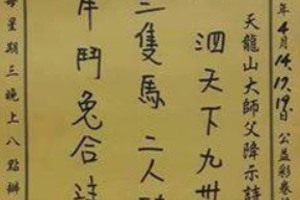 年4月14.17.19日 公益彩券
天龍山大師父降示詩
泗天下九卅
三隻馬二人
岸鬥兔合
每星期三晚上八點辦